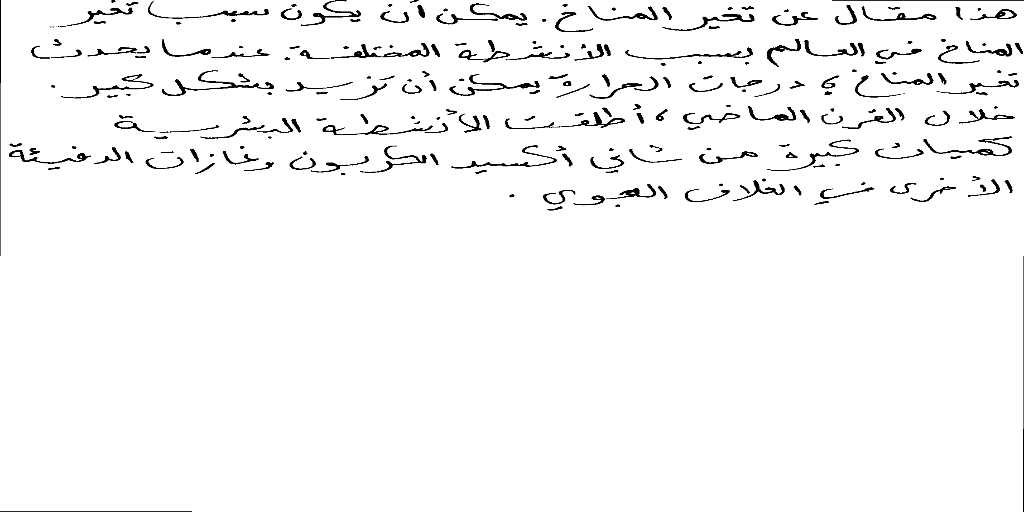 هذا مقال عن تغير المناخ. يمكن أن يكون سبب تغير
المناخ في العالم بسبب الأنشطة المختلفة. عندما يحدث
تغير المناخ ، درجات الحرارة يمكن أن تزيد بشكل كبير.
خلال القرن الماضي ، أطلقت الأنشطة البشرية
كميات كبيرة من ثاني أكسيد الكربون وغازات الدفيئة
الأخرى في الغلاف الجوي .